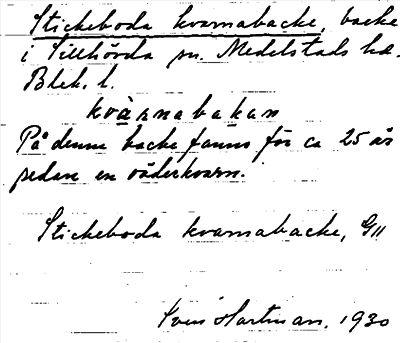 Stickeboda kvarnabacke, backe
i Tillhörda sn. Medelstads hd.
Blek. l.
kvàrnabakan
På denna backe fanns för ca 25 år
sedan en väderkvarn.
Stickeboda kvarnabacke, G11
Sven Hartman. 1930